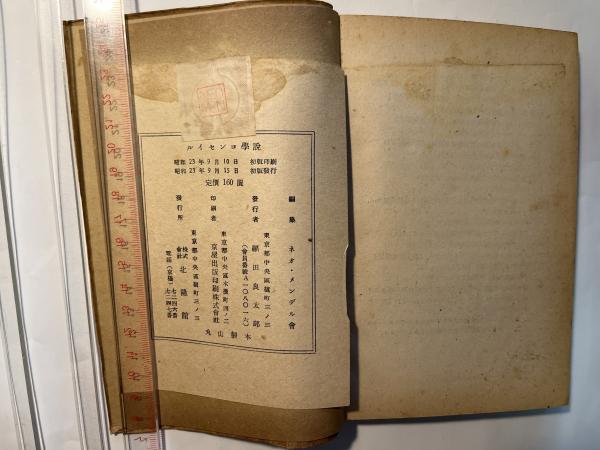 ルイセンコ學說
昭和 23 年 9 月 10 日 初版印刷
昭和 23 年 9 月 15 日 初版發行
定價 160 圓
編集 ネオ・メンデル會
東京都中央區槇町三ノ三
發行者 福田良太郎
(會員番號A一〇八〇一六)
東京都中央區水溪町四ノ二
印刷者 京屋出版印刷株式會社
東京都中央區槇町三ノ三
發行所 株式會社 北隆館
丸山製本